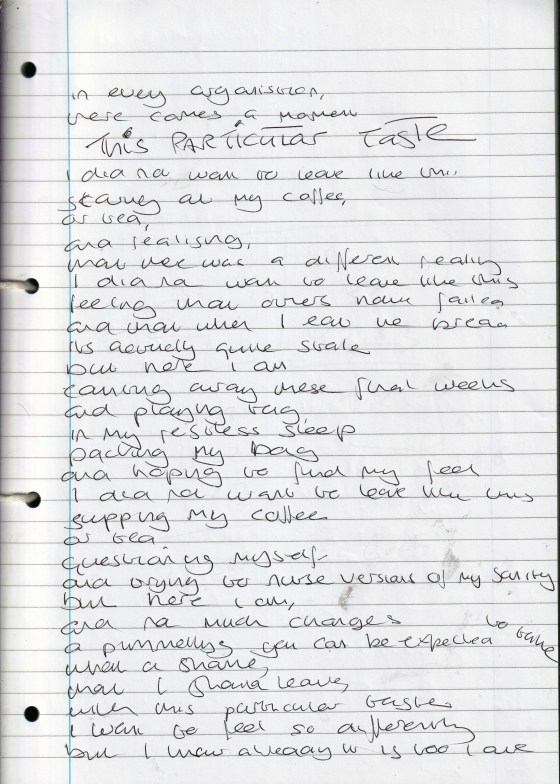 in every organisation,
there comes a moment
This PARTicular taste
I did not want to leave like this
staring at my coffee,
or tea,
and realising,
that there was a different reality
I did not want to leave like this
feeling that others have failed
and that when I eat the bread
its actually quite stale
but here I am
counting away these final weeks
and playing tag
in my restless sleep
packing my bag
and hoping to find my feet
I did not want to leave like this
supping my coffee
or tea
questioning myself
and trying to nurse versions of my sanity
but here I am,
and not much changes
a pummelling you can be expected to take
what a shame,
that I should leave,
with this particular taste
I want to feel so differently
but I know already it is too late